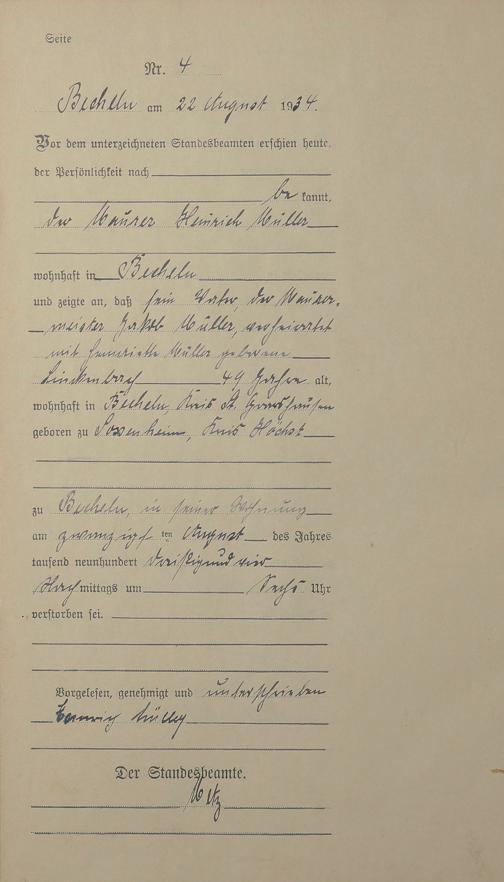 Seite
Nr. 4
Becheln am 22 August 1934.
Vor dem unterzeichneten Standesbeamten erschien heute,
der Persönlichkeit nach
be kannt,
der Maurer Heinrich Müller
wohnhaft in Becheln
und zeigte an, daß sein Vater, der Maurer-
meister Jakob Müller, verheiratet
mit Henriette Müller geborene
Linckenbach 49 Jahre alt,
wohnhaft in Becheln, Kreis St. Goarshausen
geboren zu Sossenheim, Kreis Höchst
zu Becheln, in seiner Wohnung
am zwanzigsten ten August des Jahres
tausend neunhundert dreißigundvier
Nachmittags um Sechs Uhr
verstorben sei.
Vorgelesen, genehmigt und unterschrieben
Heinrich Müller
Der Standesbeamte.
Metz